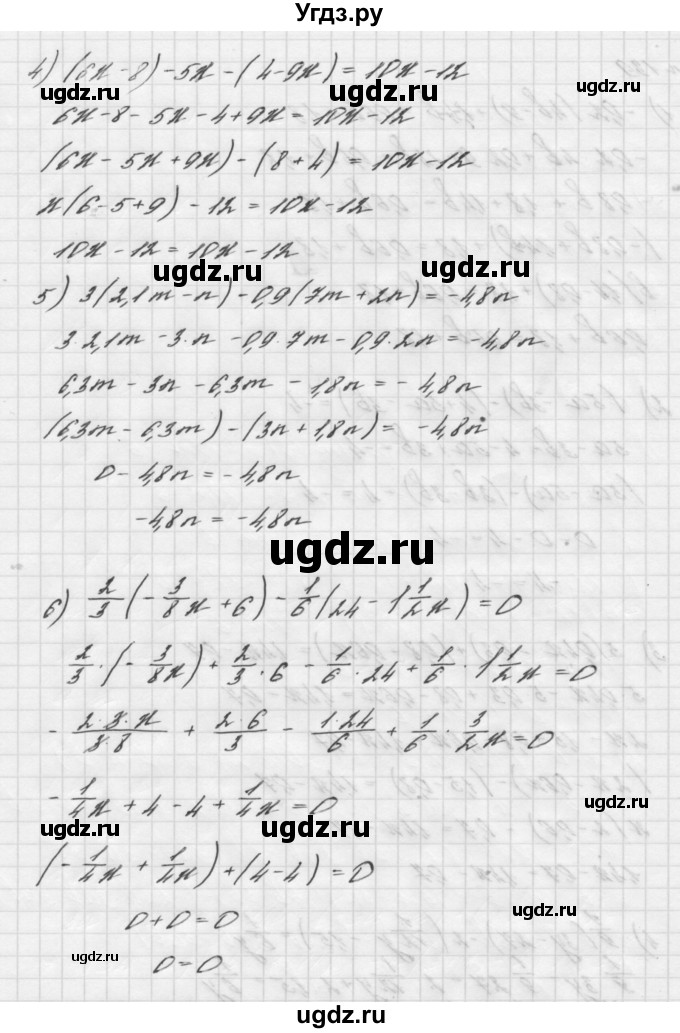 Угдз.ру
4) (6x-8)-5x-(4-9x)=10x-12
ugdz.ru ugdz.ru ugdz.ru
6x-8-5x-4+9x=10x-12
(6x-5x+9x)-(8+4)=10x-12
x(6-5+9)-12=10x-12
10x-12=10x-12
ugdz.ru ugdz.ru
5) 3(2,1m-n)-0,9(7m+2n)=-4,8n
3·2,1m-3·n-0,9·7m-0,9·2n=-4,8n
6,3m-3n-6,3m-1,8n=-4,8n
(6,3m-6,3m)-(3n+1,8n)=-4,8n
0-4,8n=-4,8n
-4,8n=-4,8n
ugdz.ru
6) 2/3(-3/8x+6)-1/6(24-1 1/2x)=0
2/3·(-3/8x)+2/3·6-1/6·24+1/6·1 1/2x=0
-2·3·x/3·8+2·6/3-1·24/6+1/6·3/2x=0
-1/4x+4-4+1/4x=0
ugdz.ru
ugdz.ru ugdz.ru
(-1/4x+1/4x)+(4-4)=0
0+0=0
ugdz.ru
0=0
ugdz.ru
ugdz.ru